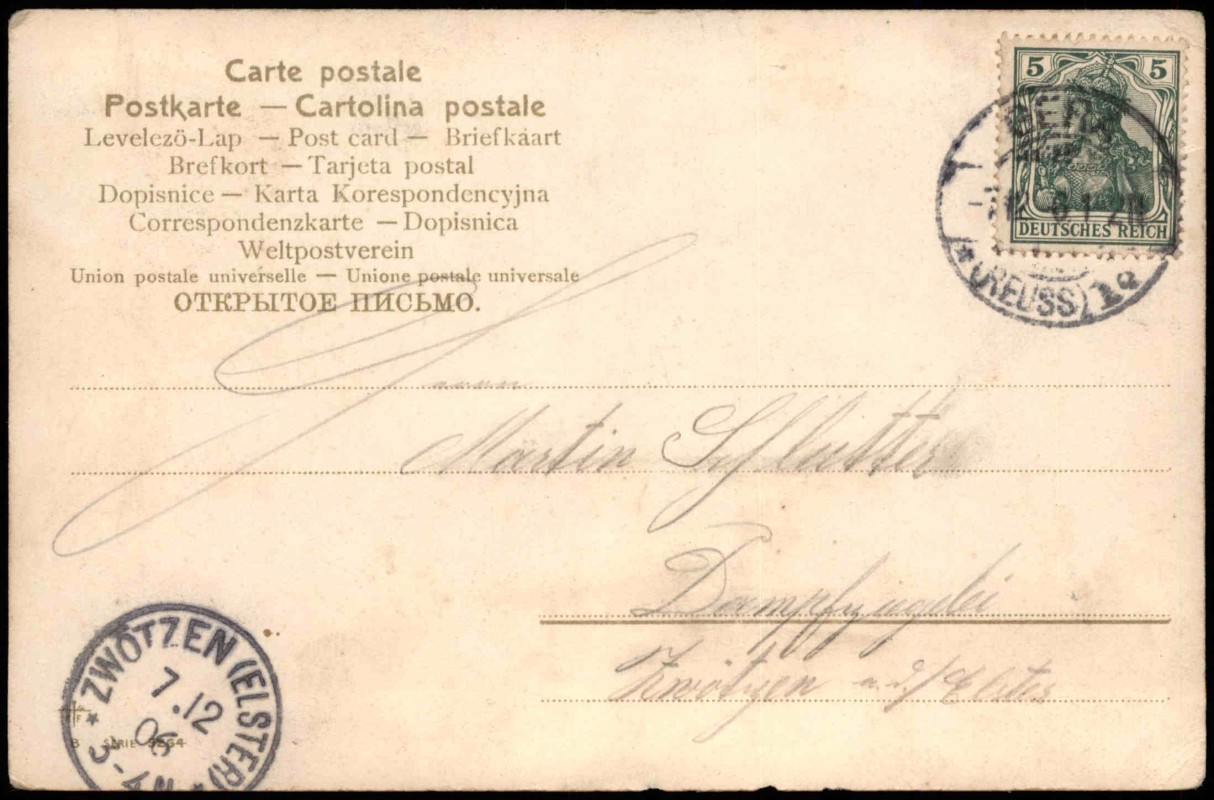 Carte postale
Postkarte — Cartolina postale
Levelezö-Lap — Post card — Briefkaart
Brefkort — Tarjeta postal
Dopisnice — Karta Korespondencyjna
Correspondenzkarte — Dopisnica
Weltpostverein
Union postale universelle — Unione postale universale
ОТКРЫТОЕ ПИСЬМО.
5 5
DEUTSCHES REICH
GERA
* (REUSS)
Herrn
Martin Schlutter
Dampfziegelei
Zwötzen a. d. / Elster
* ZWÖTZEN (ELSTER) *
7.12
06
3-4N
SERIE